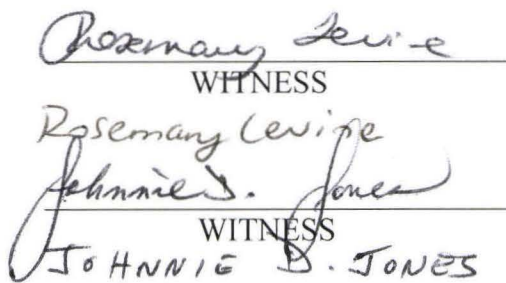 Rosemary Levine
WITNESS
Rosemary Levine
Johnnie D. Jones
WITNESS
JOHNNIE D. JONES